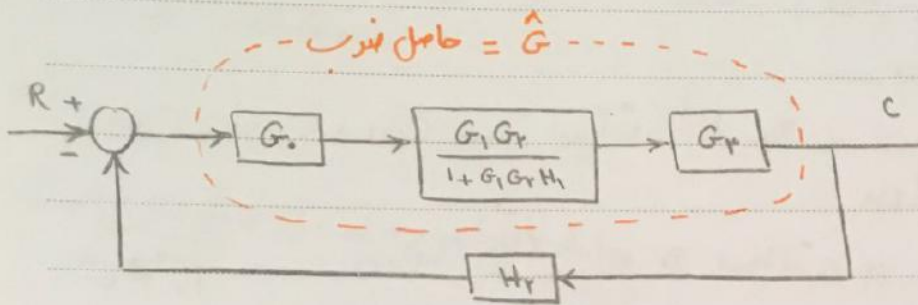 حاصل ضرب = Ĝ
R + C
G۰ G۱G۲ / ۱ + G۱G۲H۱ G۳
-
H۲